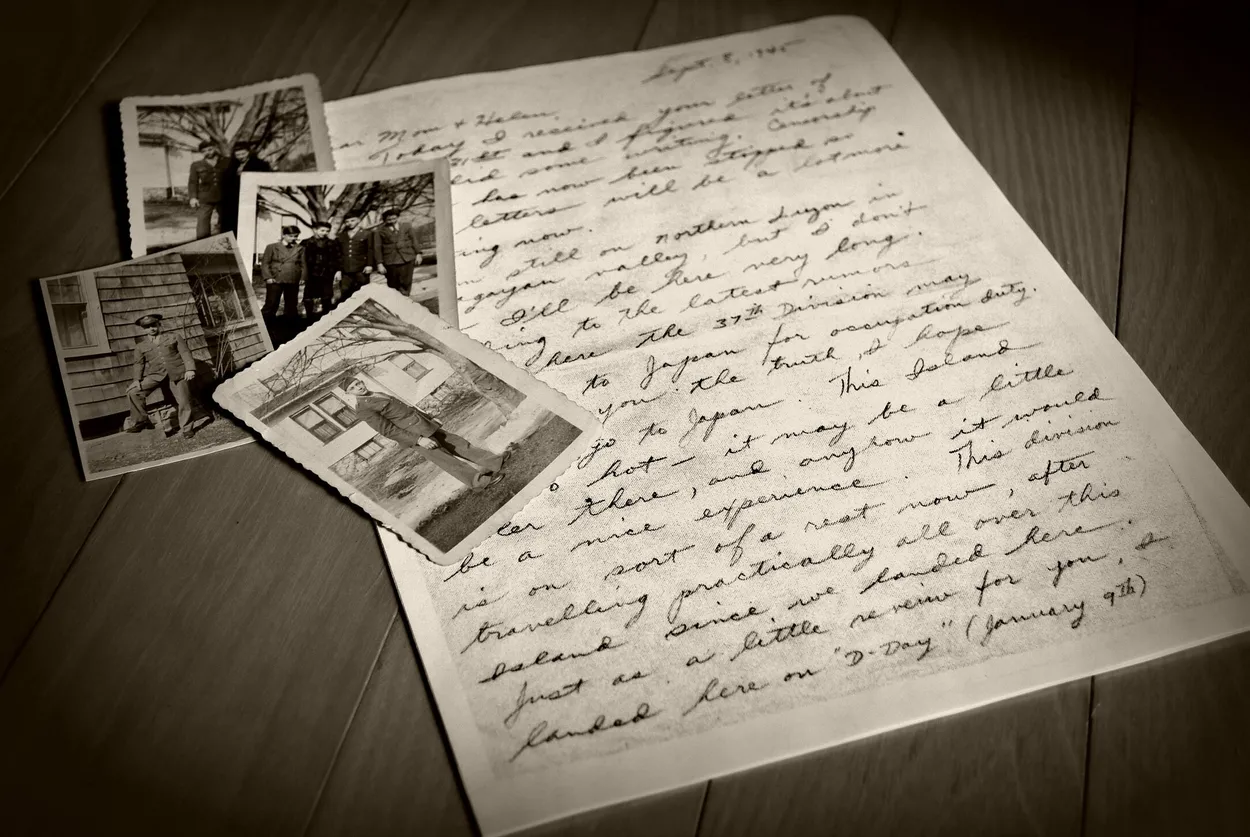 Sept. 8, 1945
ar Mom & Helen,
Today I received your letter of
and I figured it's about
did some writing. Censorship
has now been stopped so
letters will be a lot more
ing now.
still on northern Luzon in
gayan valley, but I don't
I'll be here very long.
ing to the latest rumors
here the 37th Division may
to Japan for occupation duty.
you the truth, I hope
go to Japan. This Island
o hot - it may be a little
ler there, and anyhow it would
be a nice experience. This division
is on sort of a rest now, after
travelling practically all over this
Island since we landed here.
Just as a little review for you, I
landed here on "D-Day" (January 9th)